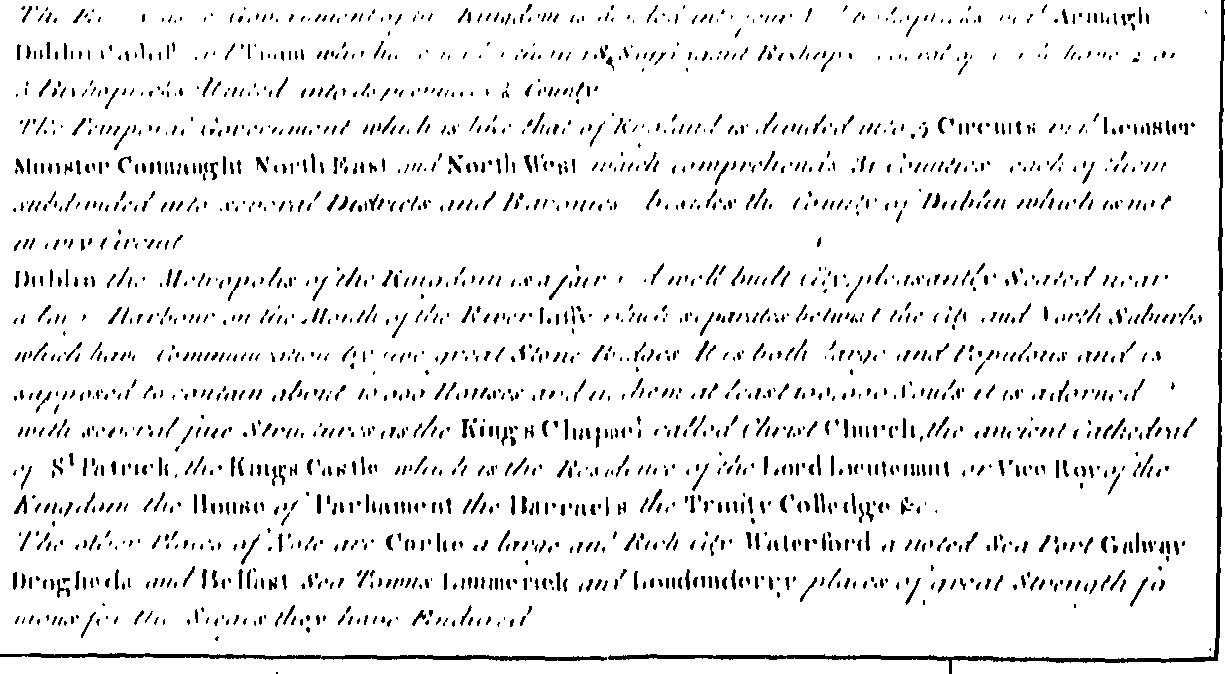 The Government of Kingdom is divided into four Armagh
Dublin Cashel and Tuam who have under them 18 Suffragant Bishops several of have 2 or
3 Bishopricks United into its provinces & County
The Temporal Government which is like that of England is divided into 5 Circuits viz Leinster
Munster Connaught North East and North West which comprehends 31 Counties each of them
subdivided into several Districts and Baronies besides the County of Dublin which is not
in any Circuit
Dublin the Metropolis of the Kingdom is a fair and well built City, pleasantly Seated near
a large Harbour on the Mouth of the River Liffe which separates betwixt the City and North Suburbs
which have Communication by five great Stone Bridges It is both large and Populous and is
supposed to contain about 10,000 Houses and in them at least 100,000 Souls it is adorned
with several fine Structures as the King's Chapsel called Christ Church, the ancient Cathedral
of St Patrick, the Kings Castle which is the Residence of the Lord Lieutenant or Vice Roy of the
Kingdom the House of Parliament the Barracks the Trinity Colledge &c.
The other Places of Note are Corke a large and Rich City Waterford a noted Sea Port Galway
Drogheda and Belfast Sea Towns Limmerick and Londonderry places of great Strength fa
mous for the Sieges they have Endured